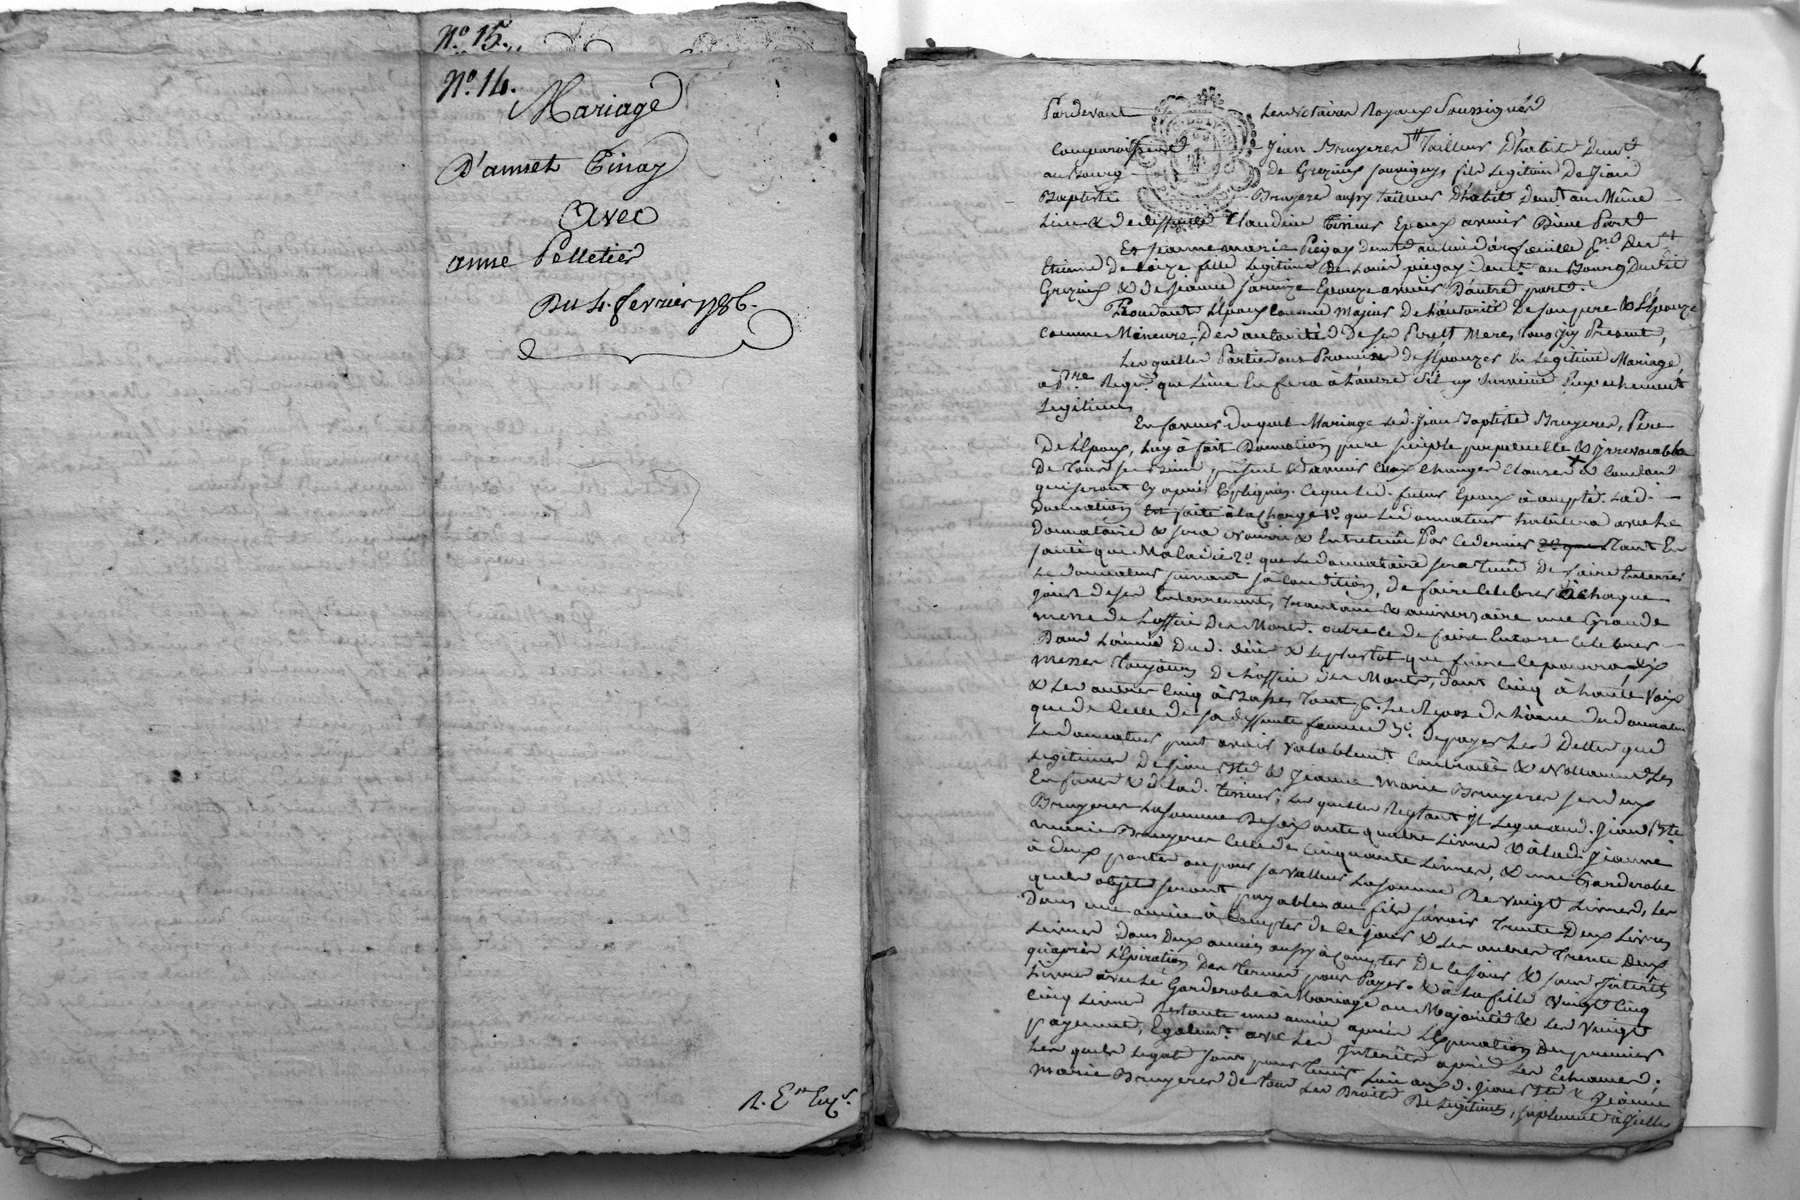 N.° 15.
N.° 14.
Mariage
D'annet Tinay
avec
anne Pelletier
Du 4. fevrier 1786.
Pardevant les Notaires Royaux Soussignés
Comparoissent Jean Bruyeres Tailleur D'habits Demt
au Bourg de Grezieu souvigny, fils Legitime De Jean
Baptiste Bruyere aussy tailleur D'habits Demt au Même
Lieu & de deffunte Claudine Epoux avenir D'une Part
Et Jeanne marie Piegay demte au lieu
Etienne de fille Legitime de Louis piegay demt au Bourg Dudit
Grezieu & de Jeanne Epouze avenir D'autre part.
Procedant L'Epoux comme Majeur de L'autorité De son pere & L'Epouze
comme Mineure, De L'autorité De ses Pere & Mere, tous icy Présents,
Lesquelles Parties ont Promis de S'Epouzer En Legitime Mariage,
à pre Requon que L'une En fera à L'autre S'il ny Survient Empechement
Legitime
En faveur duquel Mariage Led. Jean Baptiste Bruyeres, Pere
De L'Epoux, Luy à fait Donnation pure simple perpetuelle & irrevocable
De Tous ses Biens présents & avenir aux Charges Clauses & Conditions
qui seront Cy après Expliqués. Ce que Led. futur Epoux à accepté. Lad.
Donnation Est faite à la Charge 1.° que Le Donnateur habitera avec Le
Donnataire & sera Nourri & Entretenu Par Ce dernier Tant En
santé que Maladie 2.° que Le Donnataire sera Tenu De faire Enterrer
Le Donnateur suivant sa Condition, de faire Celebrer à Chaque
jours de ses Enterrement, & anniversaire une Grande
messe de L'office Des Morts. outre Ce de faire Encore Celebrer
Dans L'année Dud. décés & Leplustot que faire Ce pourra dix
messes Toujours de L'office des Morts, dont Cinq à haute Voix
& Les autres Cinq à Basses, Tant p. Le Repos de L'ame du Donnateur
que de Celle de sa deffunte femme 3.° de payer Les Dettes que
Le Donnateur peut avoir Valablemt Contracté & Nottamment Les
Legitimes De Jean Bte & Jeanne Marie Bruyeres ses deux
Enfants & de Lad. Lesquelles Reglant il Legue aud. Jean Bte
Bruyeres La somme De soixante quatre Livres & à Lad. Jeanne
marie Bruyeres Celle de Cinquante Livres, & une Garderobe
à deux portes ou pour sa valleur La somme De Vingt Livres, Les
quels objets seront payables au fils savoir Trente Deux Livres
Dans une année à Compter de Ce jour & Les autres Trente Deux
Livres Dans Deux années aussy à Compter De Ce jour & sans Intérêts
qu'après L'Epiration Des Termes pour Payer. & à La fille Vingt Cinq
Livres avec Le Garderobe à Mariage ou Majorité & Les Vingt
Cinq Livres Restante une année après L'Epiration Du premier
payement, Egalemt avec Les Interêts après Les Echeances;
Lesquels Legat sont pour Tenir Lieu aux d. Jean Bte & Jeanne
Marie Bruyeres de Tous Les Droits De Legitimes, suplement d'Icelles